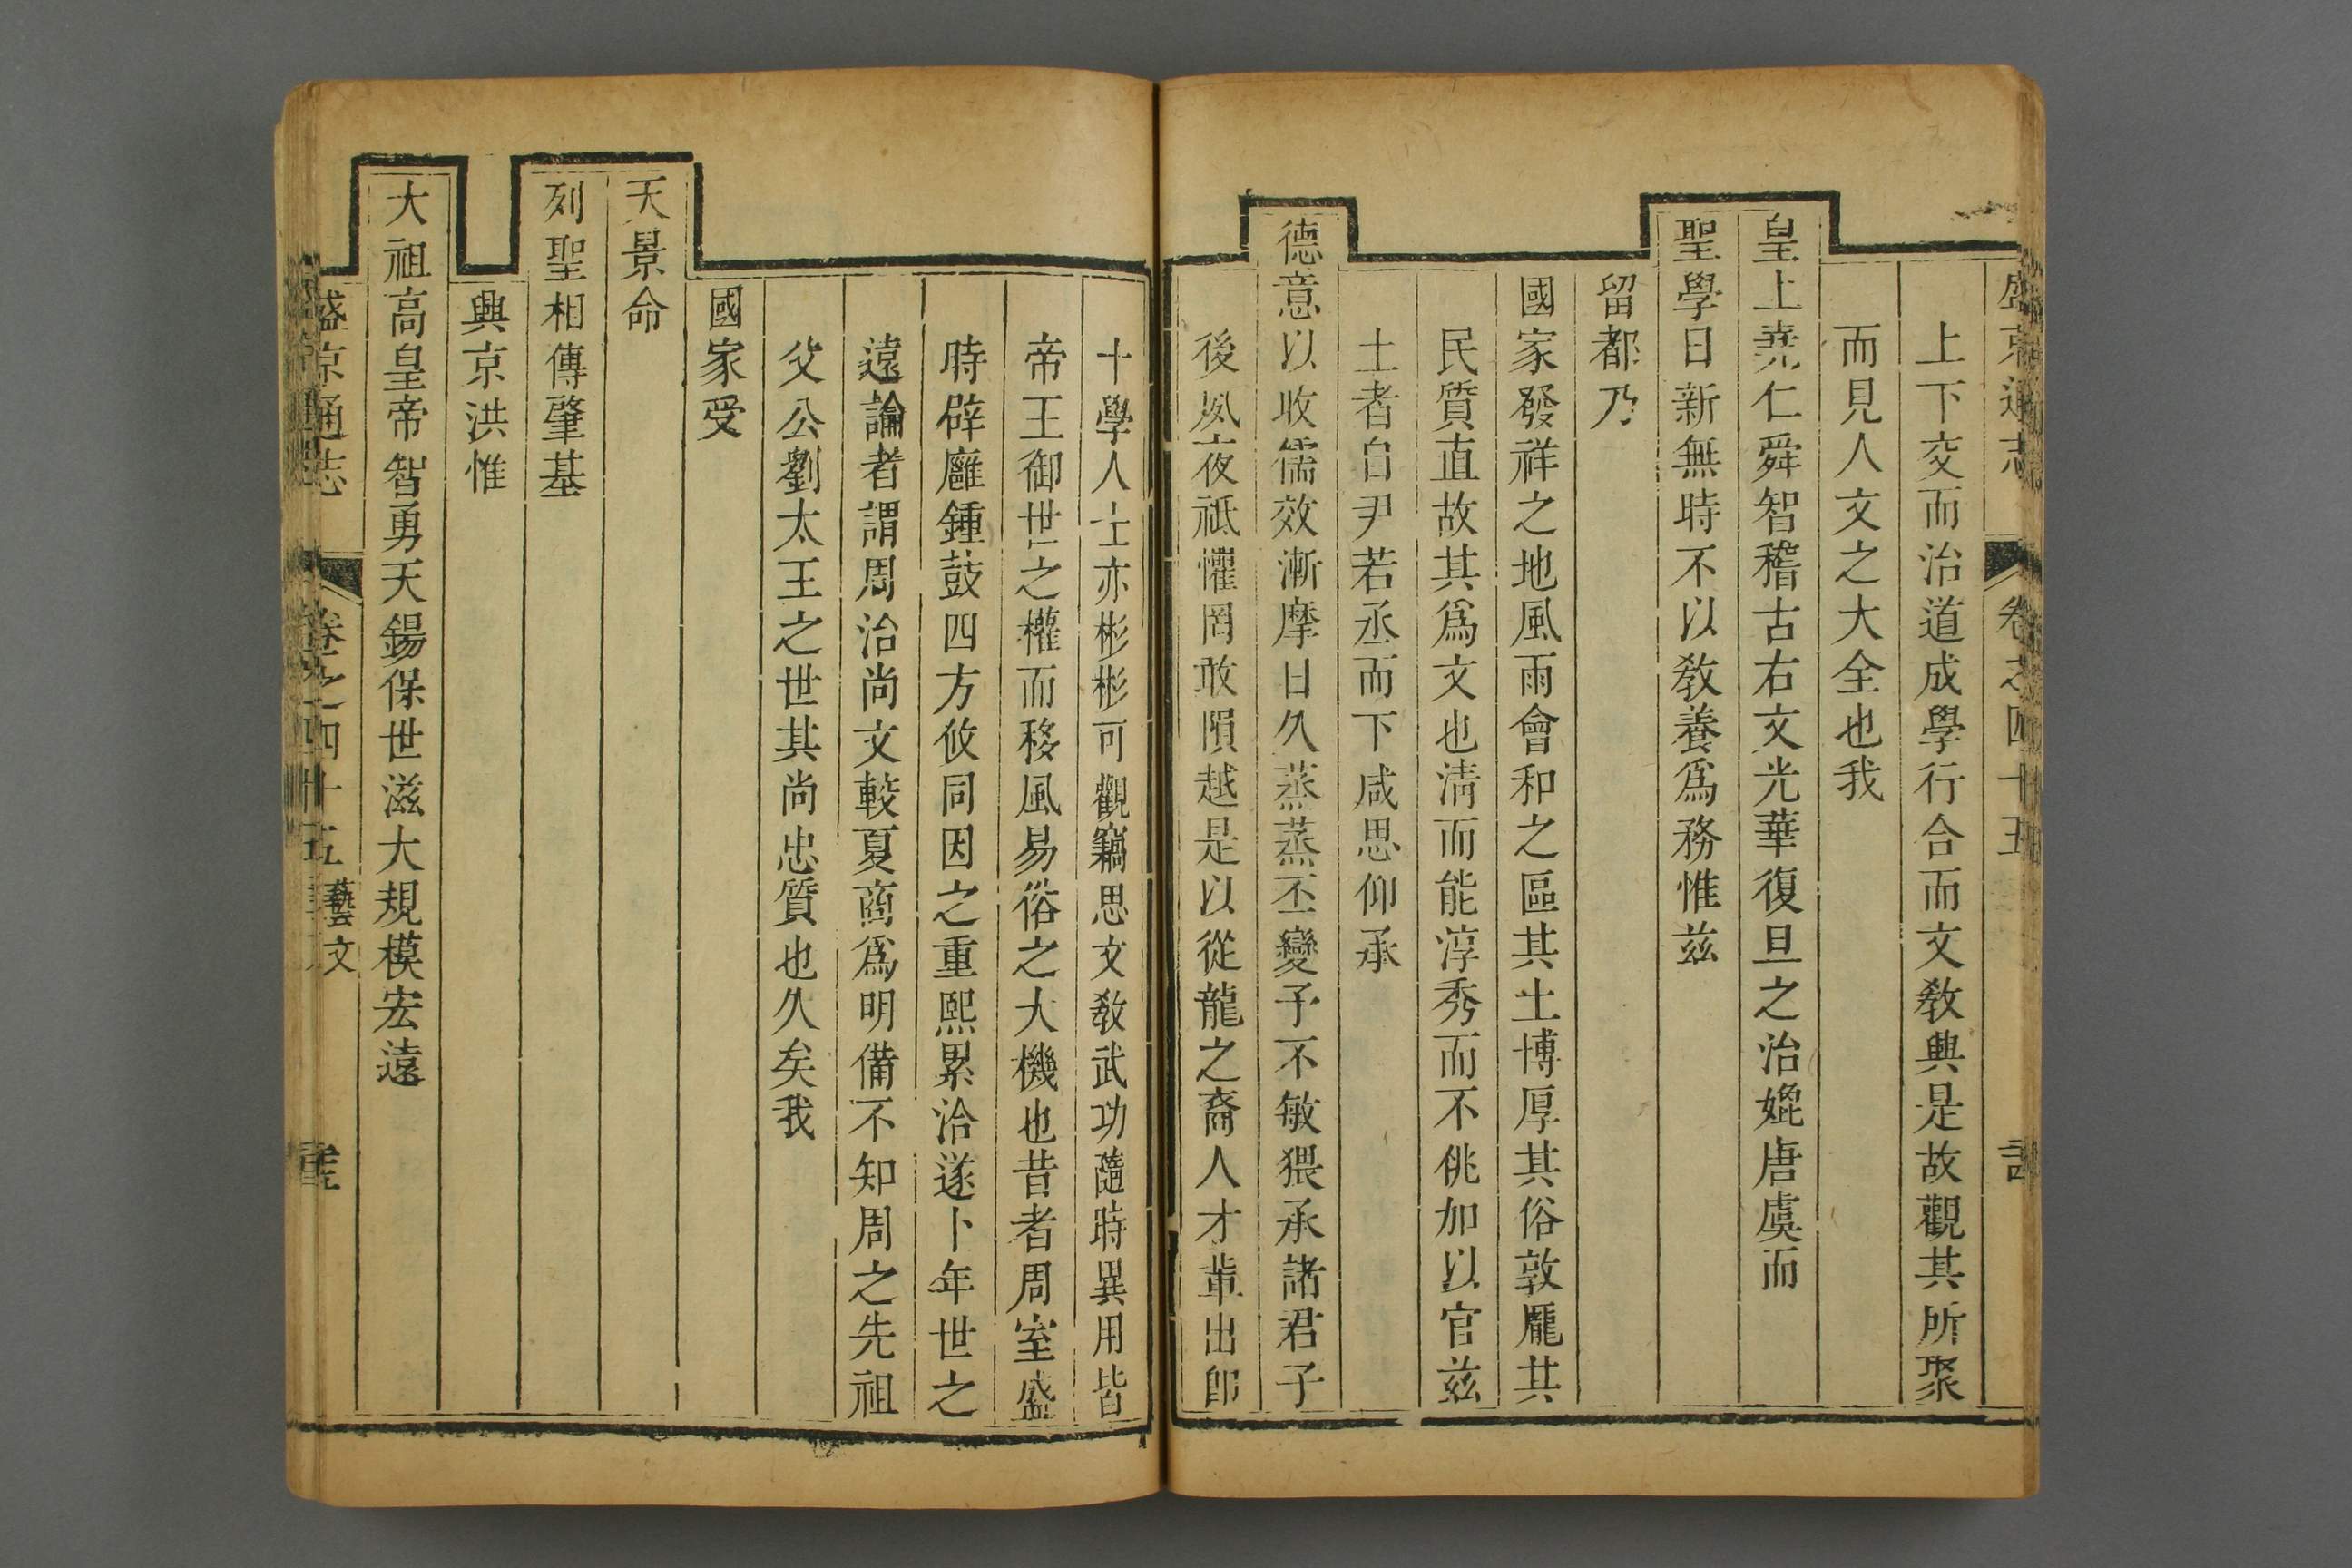 盛京通志 卷之四十五
上下交而治道成學行合而文敎興是故觀其所聚
而見人文之大全也我
皇上堯仁舜智稽古右文光華復旦之治媲唐虞而
聖學日新無時不以敎養爲務惟兹
留都乃
國家發祥之地風雨會和之區其土博厚其俗敦龐其
民質直故其爲文也淸而能淳秀而不佻加以官兹
土者自尹若丞而下咸思仰承
德意以收儒效漸摩日久蒸蒸丕變予不敏猥承諸君子
後夙夜祗懼罔敢隕越是以從龍之裔人才輩出卽
十學人士亦彬彬可觀竊思文敎武功隨時異用皆
帝王御世之權而移風易俗之大機也昔者周室盛
時辟廱鍾鼓四方攸同因之重熙累洽遂卜年世之
遠論者謂周治尚文較夏商爲明備不知周之先祖
父公劉太王之世其尚忠質也久矣我
國家受
天景命
列聖相傳肇基
興京洪惟
大祖高皇帝智勇天錫保世滋大規模宏遠
盛京通志 卷之四十五 藝文